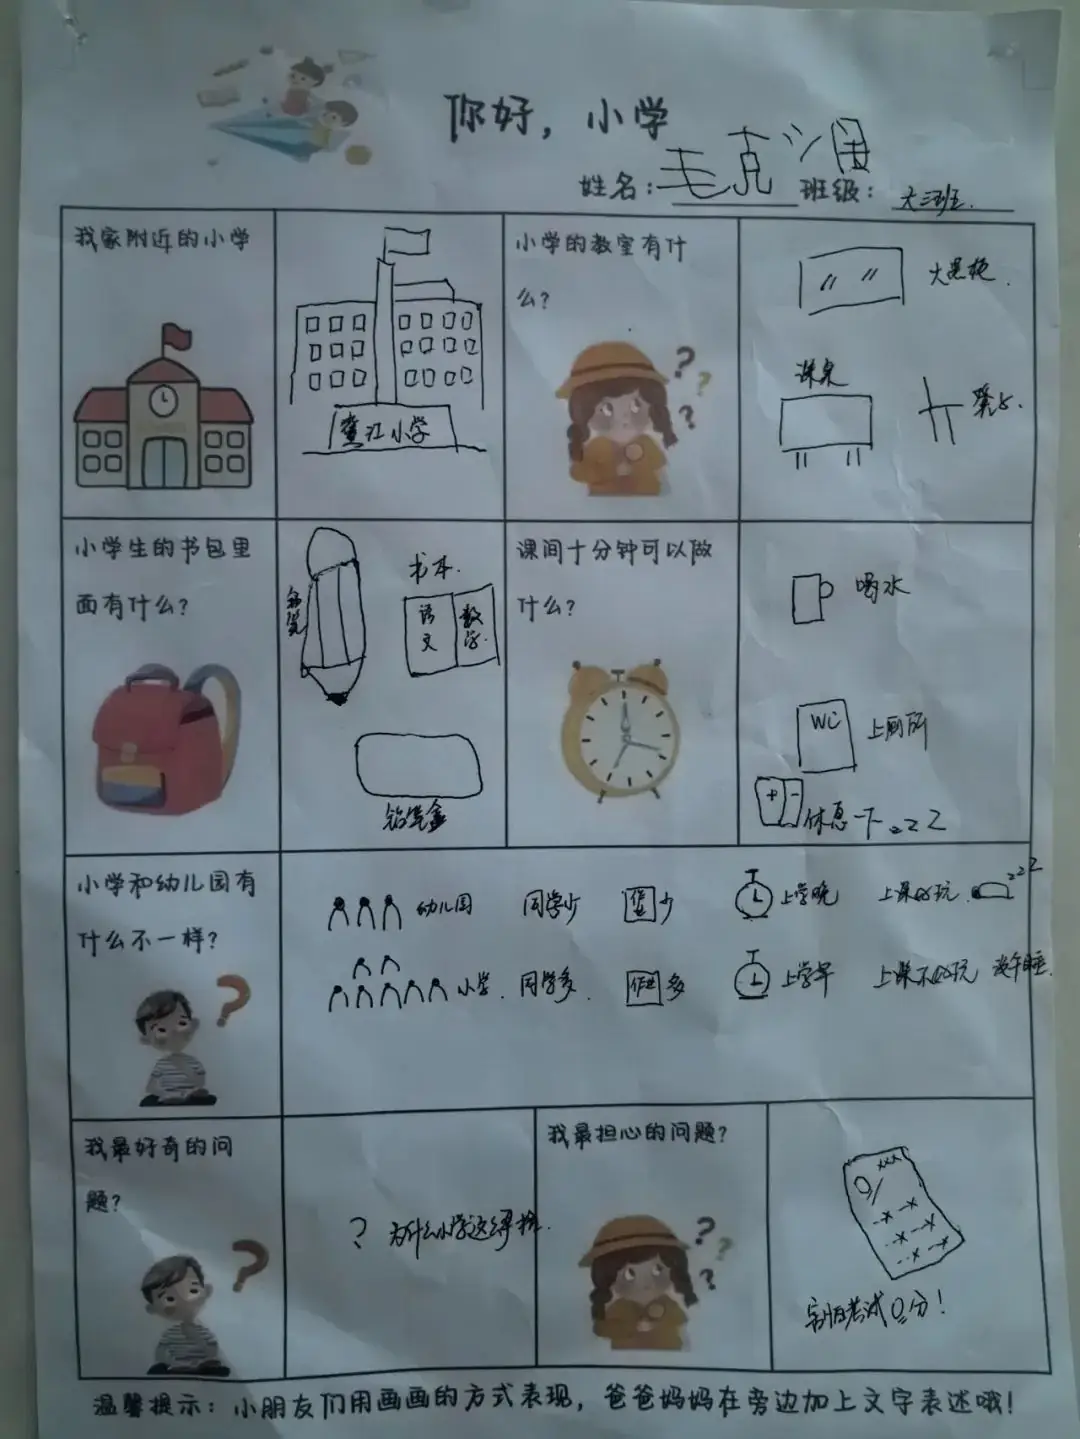 你好，小学
姓名：毛克
班级：大三班.
我家附近的小学
江小学
小学的教室有什
么？
大黑板.
课桌
凳子.
小学生的书包里
面有什么？
铅笔
书本.
语文
数学.
铅笔盒
课间十分钟可以做
什么？
喝水
WC
上厕所
+ -
休息一下 zzZ
小学和幼儿园有
什么不一样？
幼儿园 同学少 作业少 上学晚 上课好玩. zzZ
小学. 同学多. 作业多 上学早 上课不好玩 没午睡.
我最好奇的问
题？
? 为什么小学这么
我最担心的问题？
xxx
0
害怕考试0分！
温馨提示：小朋友们用画画的方式表现，爸爸妈妈在旁边加上文字表述哦！